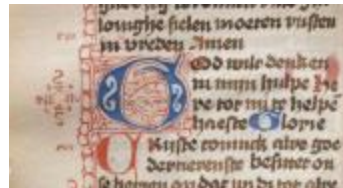 louighe sielen moeten rusten
in vreden Amen
GOd wilt denken
in mijn hulpe He
re tot mi te helpe
haeste Glorie
CRiste coninck alre goe
dertierenste besittet on
se herten op dat wi di tot alre